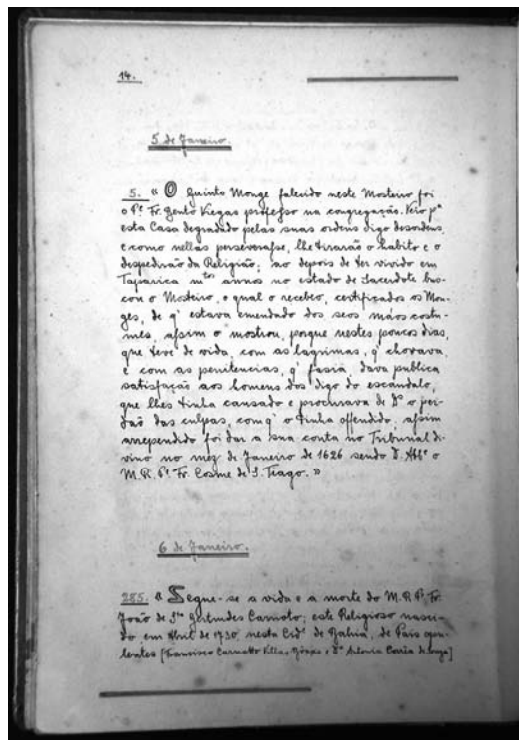 14.
5 de Janeiro.
5. « O Quinto Monge falecido neste Mosteiro foi
o Pe. Fr. Bento Viegas professo na congregação. Veio pª
esta Casa degradado pelas suas ordens digo desordens,
e como nellas perseverasse, lhe tirarão o habito e o
despedirão da Religião; ao depois de ter vivido em
Taparica mtos annos no estado de Sacerdote bus-
cou o Mosteiro, o qual o recebeo, certificados os Mon-
ges, de q' estava emendado dos seos mãos costu-
mes, assim o mostrou, porque nestes poucos dias,
que teve de vida, com as lagrimas, q' chorava,
e com as penitencias, q' fasia, dava publica
satisfação aos homens dos digo do escandalo,
que lhes tinha causado e procurava de Ds o per-
dão das culpas, com q' o tinha offendido, assim
arrependido foi dar a sua conta no Tribunal di-
vino no mez de Janeiro de 1626 sendo D. Abbe o
M. R. Pe. Fr. Cosme de S. Tiago. »
6 de Janeiro.
285. « Segue-se a vida e a morte do M. R. Pe. Fr.
João de Sta Gertrudes Carnoto; este Religioso nasci-
do em Abril de 1730, nesta Cide da Bahia, de Pais opu-
lentos [Francisco Carnotto Villas, Góxas e Dª Antonia Corrêa de Souza]